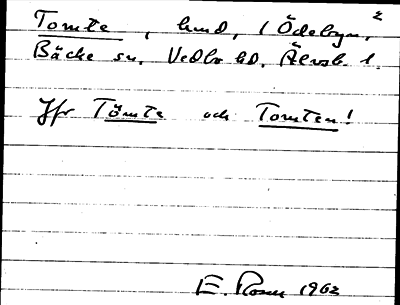 Tomte, hmd, 1 Ödebyn, 2
Bäcke sn. Vedbo hd. Älvsb. l.
Jfr Tömte och Tomten!
E. Rosen 1962